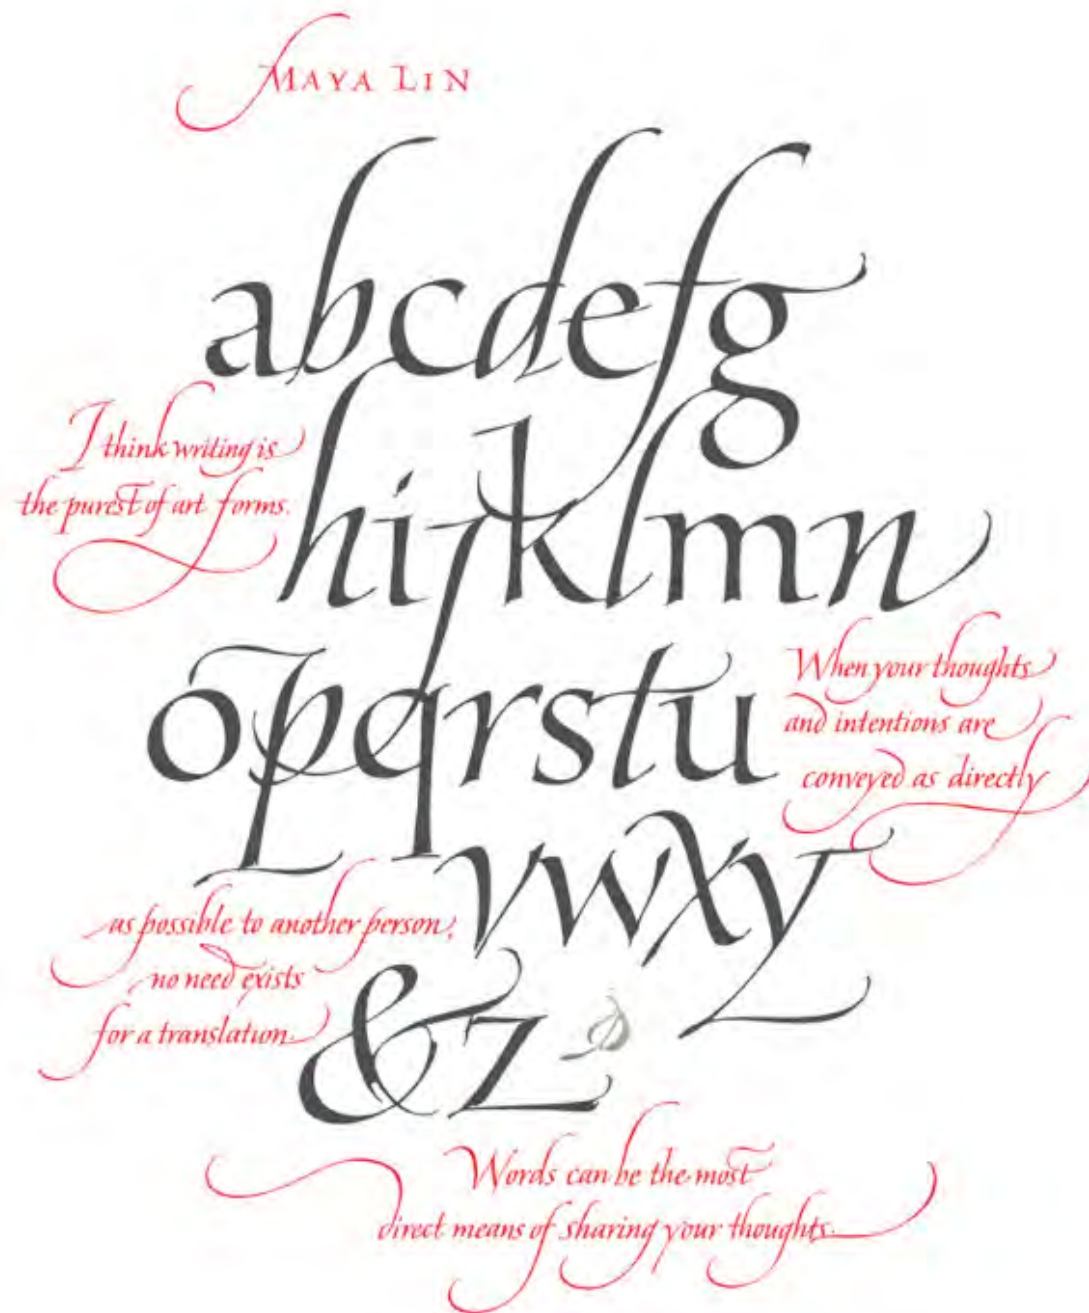 MAYA LIN
abcdefg
I think writing is
the purest of art forms.
hijklmn
opqrstu
When your thoughts
and intentions are
conveyed as directly
vwxy
as possible to another person,
no need exists
for a translation.
&z
Words can be the most
direct means of sharing your thoughts.